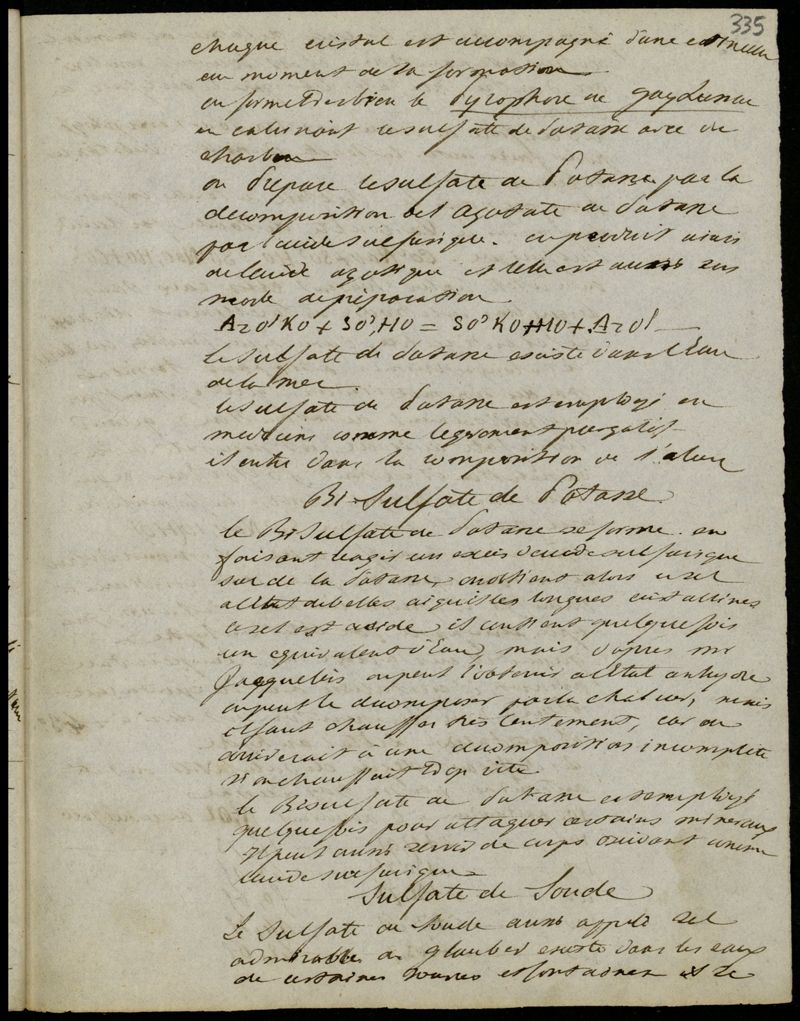 335
chaque cristal est accompagné d'une etincelle
au moment de la formation
on forme très bien le Pyrophore de Gay Lussac
en calcinant le sulfate de Potasse avec du
charbon
on Prépare le sulfate de Potasse par la
décomposition de l'Azotate de Potasse
par l'acide sulfurique. on produit ainsi
de l'acide azotique et telle est aussi son
mode de préparation
AzO⁵KO + SO³,HO = SO³KO + HO + AzO⁵
le sulfate de Potasse existe dans l'Eau
de la mer.
le sulfate de Potasse est employé en
medecine comme legerement purgatif
il entre dans la composition de l'alun
Bi-Sulfate de Potasse
le Bi Sulfate de Potasse se forme en
faisant reagir un excès d'acide sulfurique
sur de la Potasse, on obtient alors ce sel
a l'Etat de belles aiguilles longues cristallines
ce sel est acide il contient quelque fois
un equivalent d'Eau, mais d'apres mr
Jacquelain on peut l'obtenir a l'Etat anhydre
on peut le decomposer par la chaleur, mais
il faut chauffer très lentement, car on
arriverait à une decomposition incomplete
si on chauffait trop vite
le Bisulfate de Potasse est employé
quelquefois pour attaquer certains mineraux
il peut aussi servir de corps oxidant comme
l'acide sulfurique
Sulfate de Soude
Le Sulfate de Soude aussi appelé sel
admirable de glauber existe dans les eaux
de certaines sources et fontaines et se